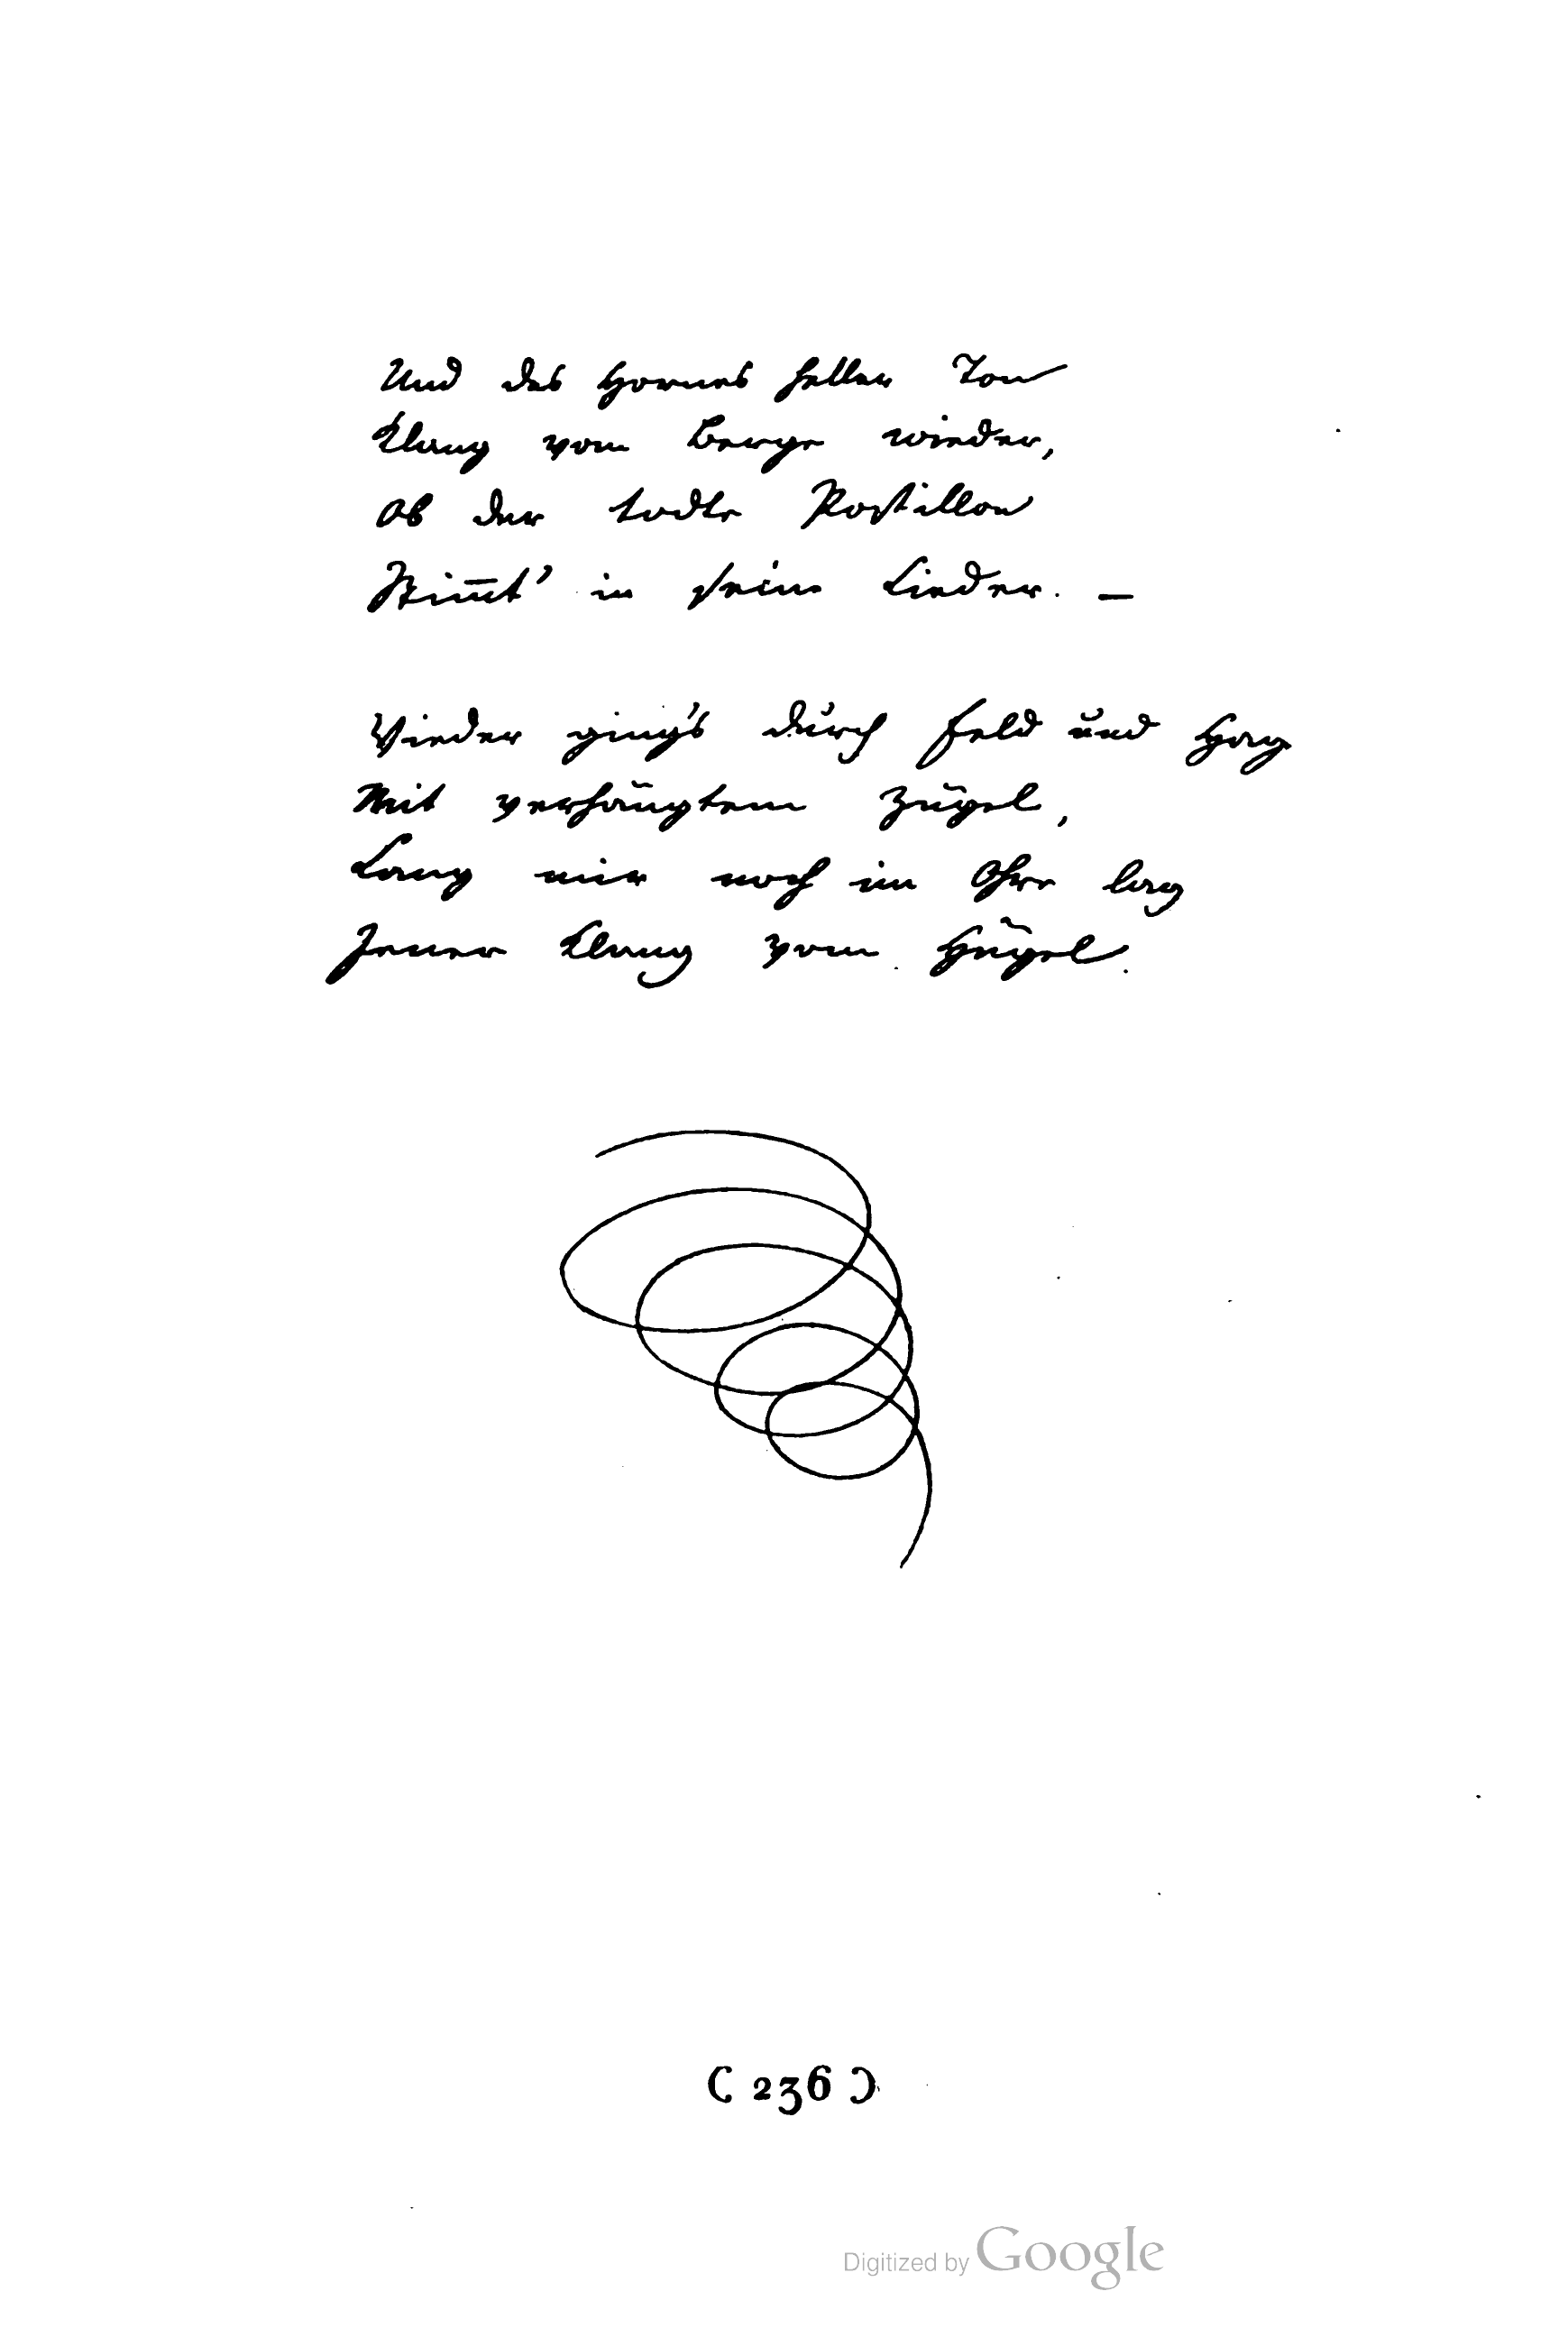 Und des Hornes heller Ton
Klang vom Berge wieder,
Ob der todte Postillon
Stim̄t' in seine Lieder. —
Wieder ging's durch Feld und Hag
Mit verhängtem Zügel,
Lang mir noch im Ohre lag
Jener Klang vom Hügel.
( 236 )
Digitized by Google